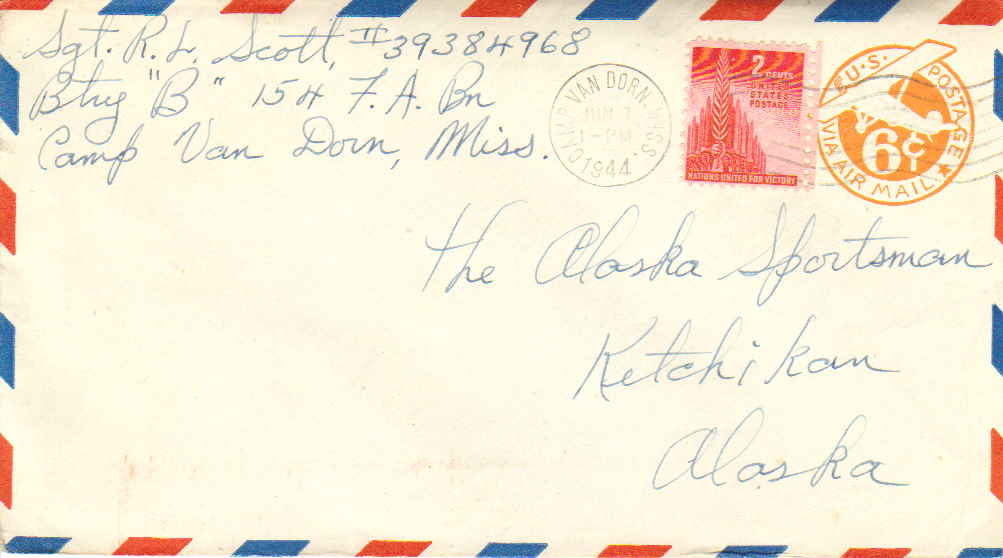 Sgt. R. L. Scott, II 39384968
Btry "B" 154 F. A. Bn
Camp Van Dorn, Miss.
CAMP VAN DORN, MISS.
JUN 7
1-PM
1944
2 CENTS
UNITED
STATES
POSTAGE
NATIONS UNITED FOR VICTORY
U.S. POSTAGE
6¢
VIA AIR MAIL
The Alaska Sportsman
Ketchikan
Alaska